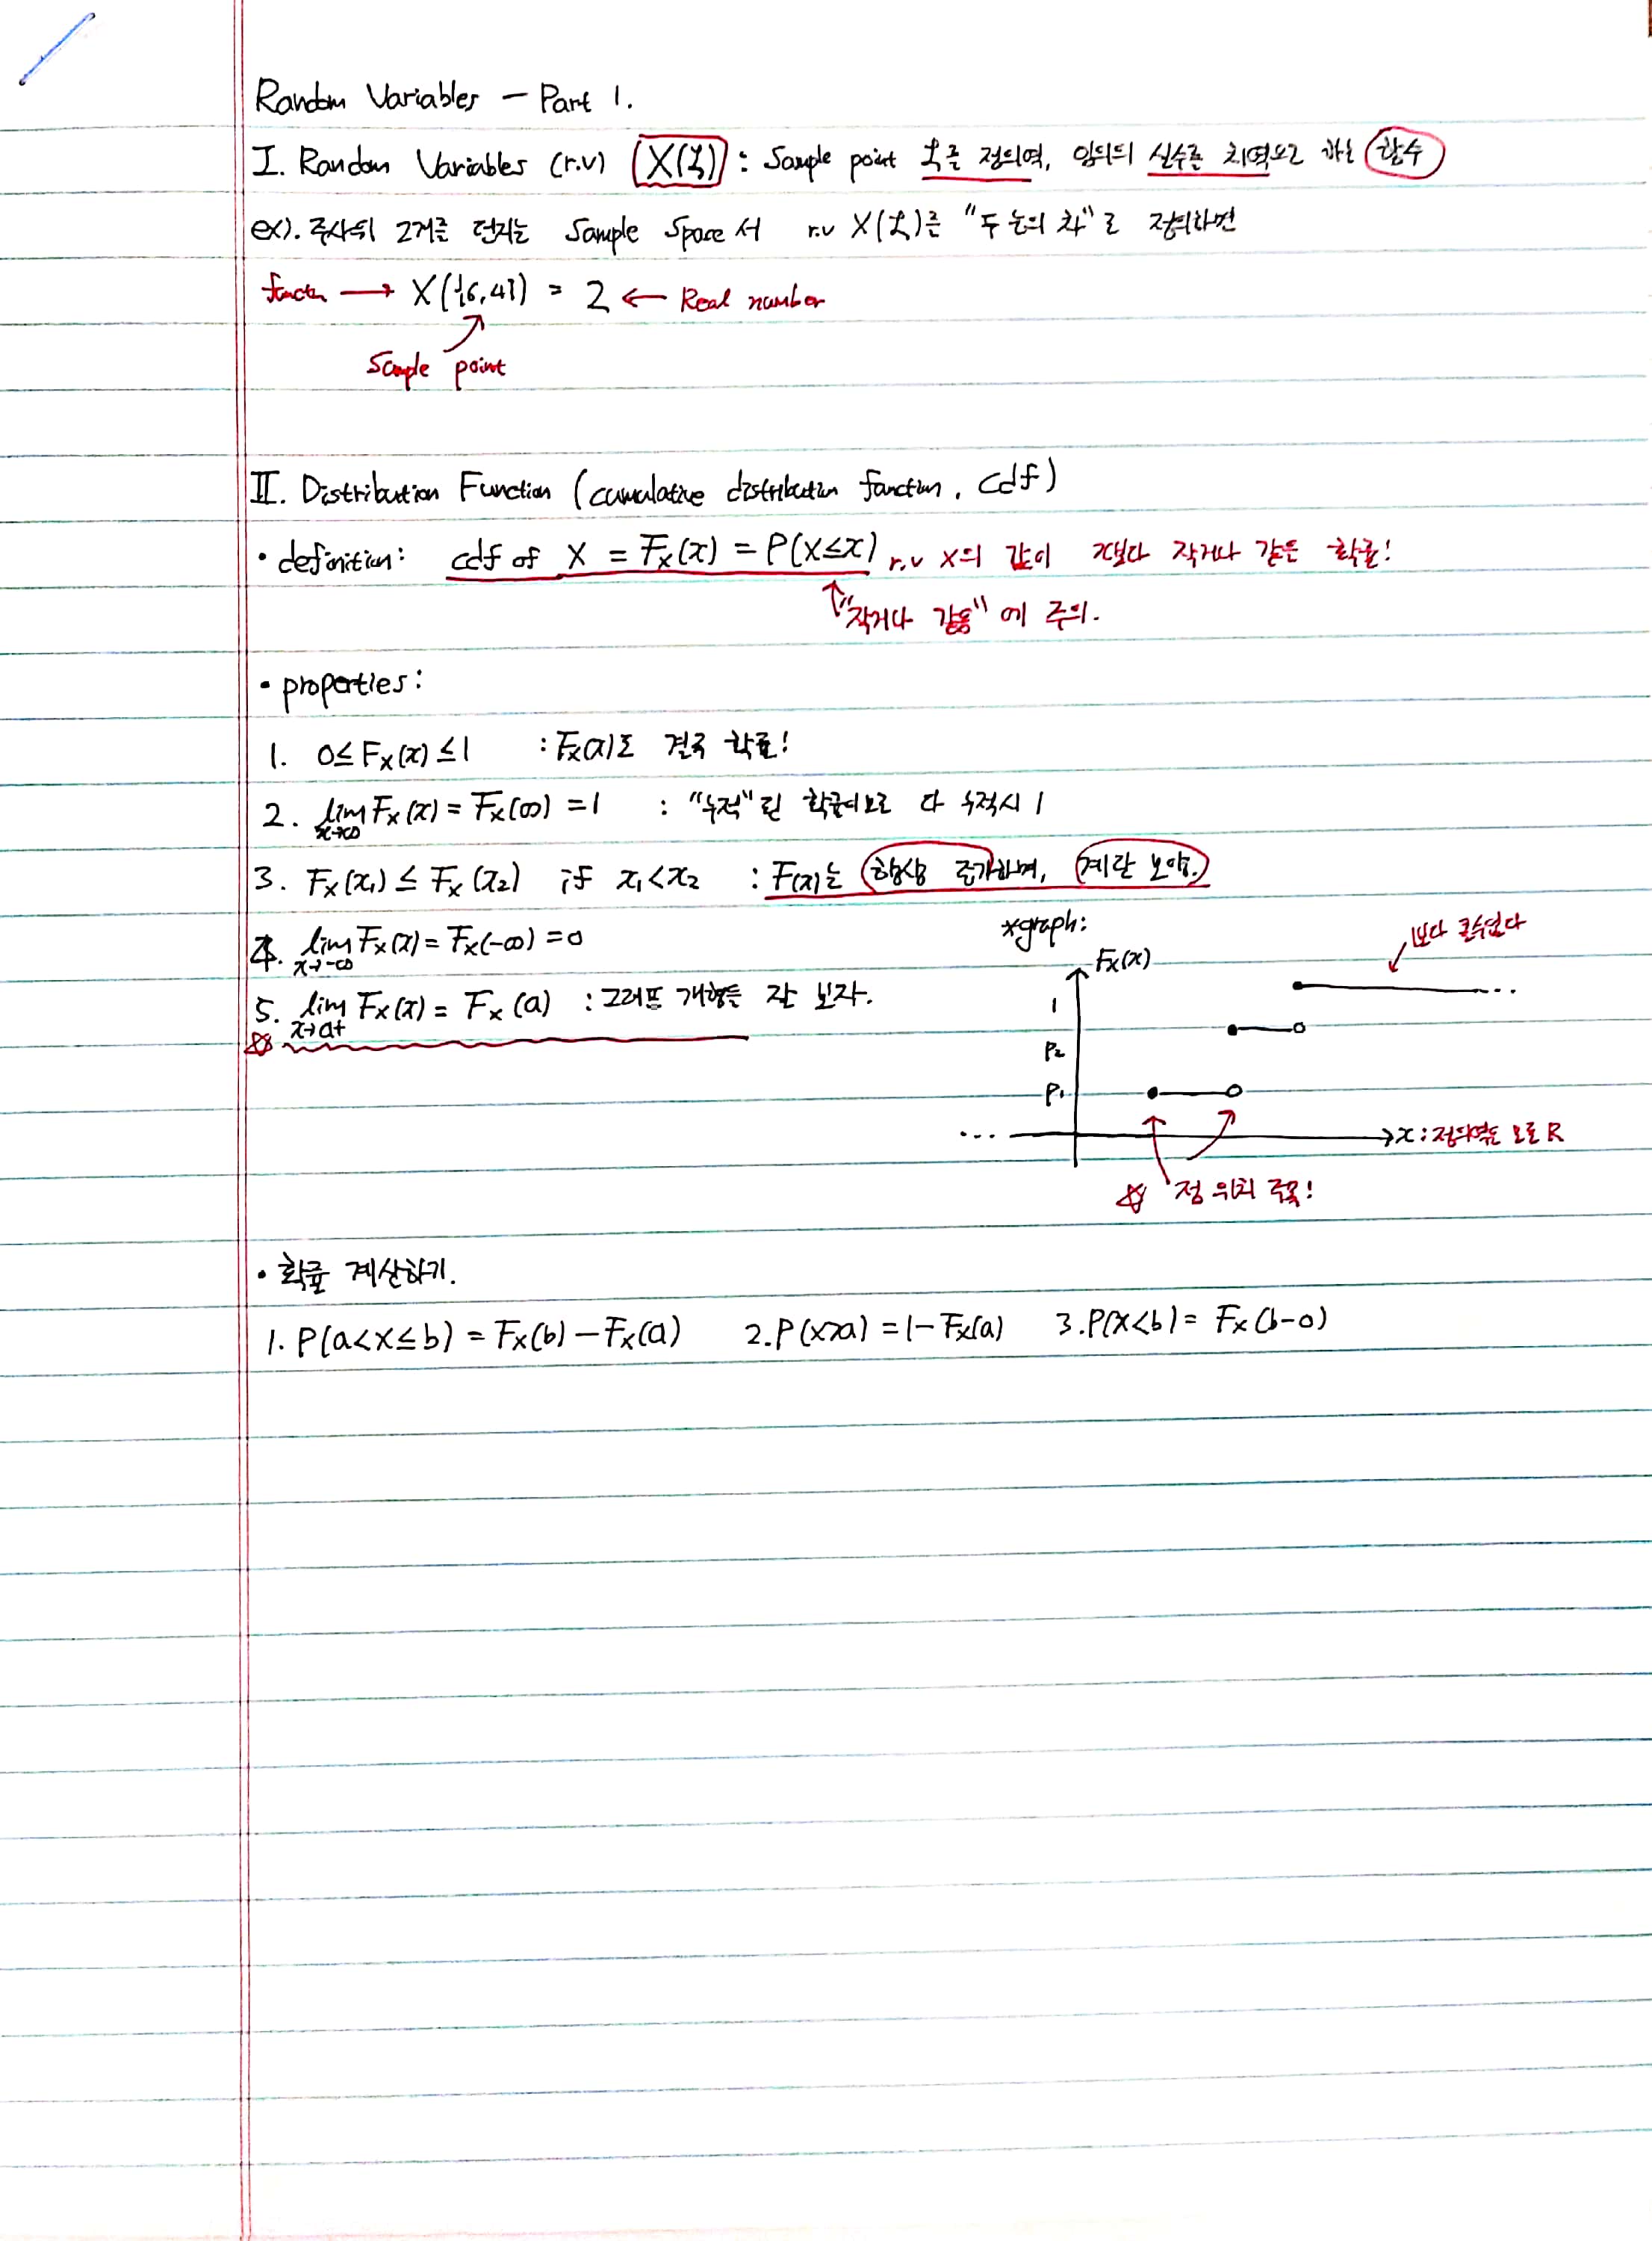 Random Variables – Part 1.
I. Random Variables (r.v) X(ξ) : Sample point ξ를 정의역, 임의의 실수를 치역으로 하는 함수
ex). 주사위 2개를 던지는 Sample Space서 r.v X(ξ)를 "두 눈의 차"로 정의하면
function → X({6,4}) = 2 ← Real number
Sample point
II. Distribution Function (cumulative distribution function, cdf)
• definition: cdf of X = Fx(x) = P(X≤x) r.v X의 값이 x보다 작거나 같을 확률!
"작거나 같음"에 주의.
• properties:
1. 0≤Fx(x)≤1 : Fx(x)도 결국 확률!
2. lim x→∞ Fx(x) = Fx(∞) = 1 : "누적"된 확률이므로 다 누적시 1
3. Fx(x₁) ≤ Fx(x₂) if x₁<x₂ : F(x)는 항상 증가하며, 계단 모양.
4. lim x→-∞ Fx(x) = Fx(-∞) = 0
5. lim x→a+ Fx(x) = Fx(a) : 그래프 개형을 잘 보자.
*graph:
1보다 클수없다
Fx(x)
1
P₂
P₁
... → x : 정의역은 모든 R
점 위치 주목!
• 확률 계산하기.
1. P(a<X≤b) = Fx(b) – Fx(a) 2. P(X>a) = 1 – Fx(a) 3. P(X<b) = Fx(b-0)